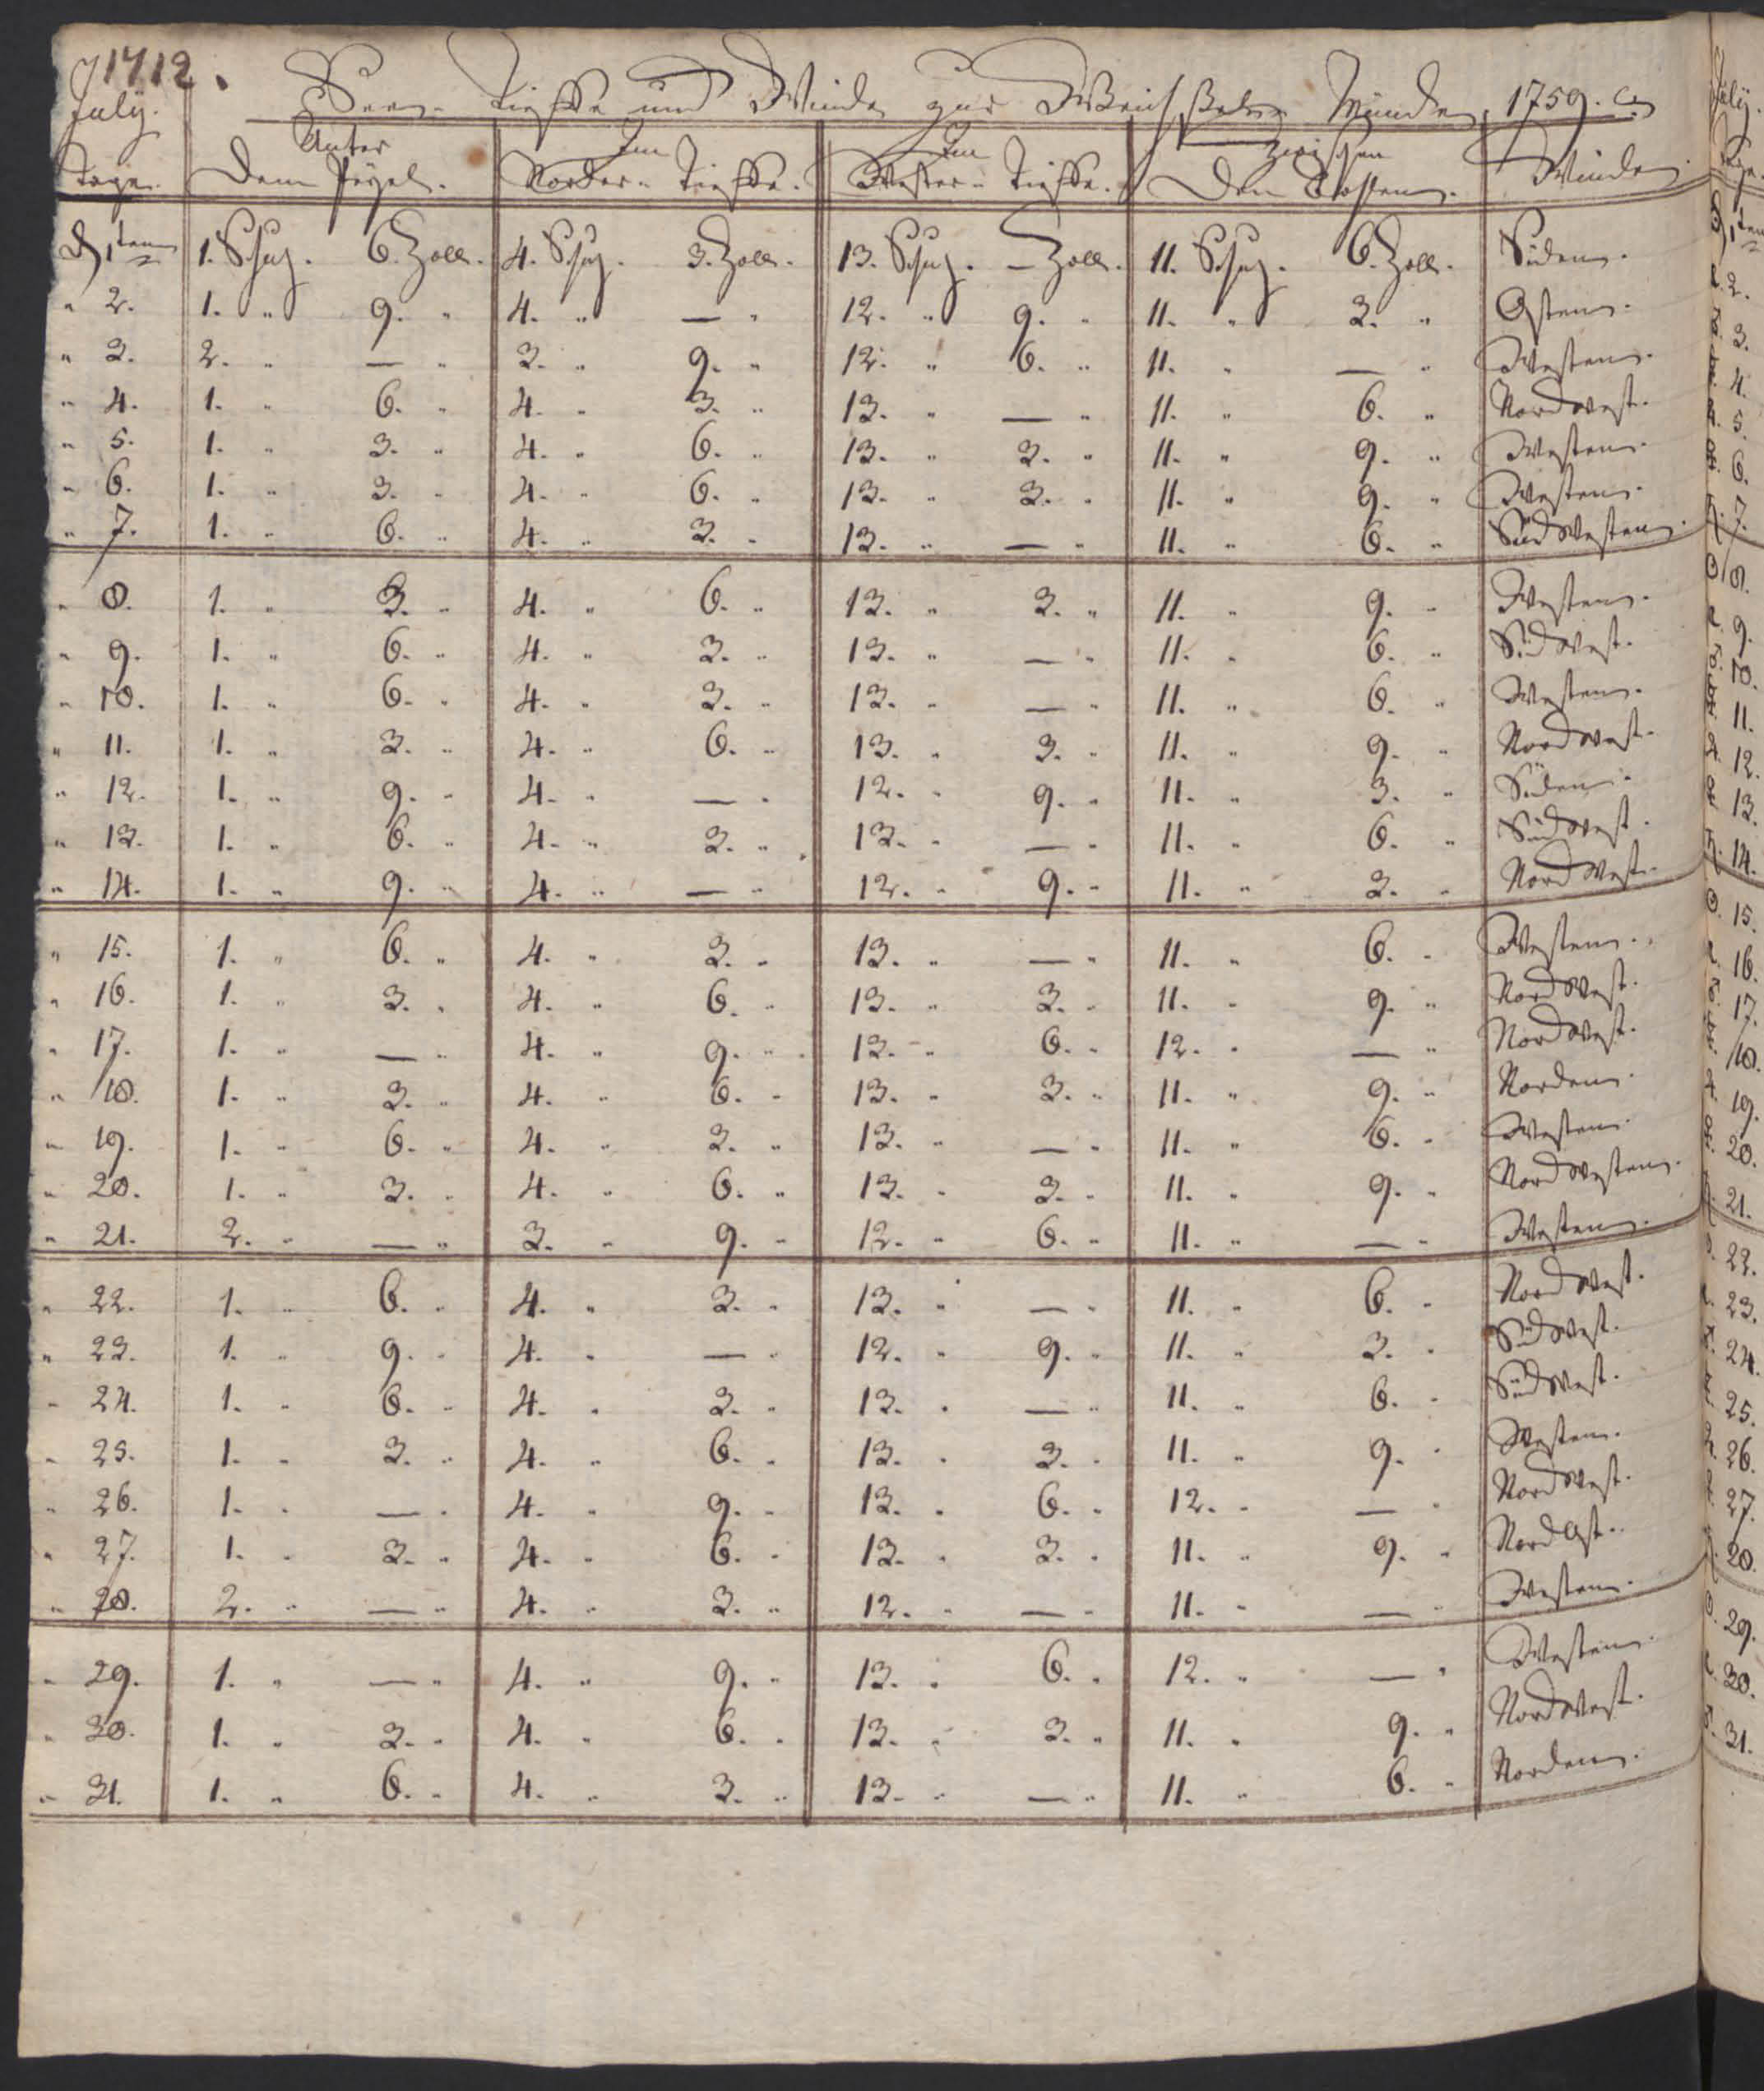 1712.
July. See- Tieffe und Winde zur Weichsel- Münde, 1759.
Tage. Unter Dem Pegel. Im Norder- Tieffe. Im Wester- Tieffe. Zwischen Den Winde
D 1ten 1. Schug. 6. Zoll. 4. Schug. 3. Zoll. 13. Schug. — Zoll. 11. Schug. 6. Zoll. Süden.
" 2. 1. " 9. " 4. " — " 12. " 9. " 11. " 3. " Osten.
" 3. 2. " — " 3. " 9. " 12. " 6. " 11. " — " Westen.
" 4. 1. " 6. " 4. " 3. " 13. " — " 11. " 6. " Nordwest.
" 5. 1. " 3. " 4. " 6. " 13. " 3. " 11. " 9. " Westen.
" 6. 1. " 3. " 4. " 6. " 13. " 3. " 11. " 9. " Westen.
" 7. 1. " 6. " 4. " 3. " 13. " — " 11. " 6. " Südwesten.
" 8. 1. " 3. " 4. " 6. " 13. " 3. " 11. " 9. " Westen.
" 9. 1. " 6. " 4. " 3. " 13. " — " 11. " 6. " Südwest.
" 10. 1. " 6. " 4. " 3. " 13. " — " 11. " 6. " Westen.
" 11. 1. " 3. " 4. " 6. " 13. " 3. " 11. " 9. " Nordwest.
" 12. 1. " 9. " 4. " — " 12. " 9. " 11. " 3. " Süden.
" 13. 1. " 6. " 4. " 3. " 13. " — " 11. " 6. " Südwest.
" 14. 1. " 9. " 4. " — " 12. " 9. " 11. " 3. " Nordwest.
" 15. 1. " 6. " 4. " 3. " 13. " — " 11. " 6. " Westen.
" 16. 1. " 3. " 4. " 6. " 13. " 3. " 11. " 9. " Nordwest.
" 17. 1. " — " 4. " 9. " 13. " 6. " 12. " — " Nordwest.
" 18. 1. " 3. " 4. " 6. " 13. " 3. " 11. " 9. " Norden.
" 19. 1. " 6. " 4. " 3. " 13. " — " 11. " 6. " Westen.
" 20. 1. " 3. " 4. " 6. " 13. " 3. " 11. " 9. " Nordwesten.
" 21. 2. " — " 3. " 9. " 12. " 6. " 11. " — " Westen.
" 22. 1. " 6. " 4. " 3. " 13. " — " 11. " 6. " Nordwest.
" 23. 1. " 9. " 4. " — " 12. " 9. " 11. " 3. " Südwest.
" 24. 1. " 6. " 4. " 3. " 13. " — " 11. " 6. " Südwest.
" 25. 1. " 3. " 4. " 6. " 13. " 3. " 11. " 9. " Westen.
" 26. 1. " — " 4. " 9. " 13. " 6. " 12. " — " Nordwest.
" 27. 1. " 3. " 4. " 6. " 13. " 3. " 11. " 9. " NordOst.
" 28. 2. " — " 4. " 3. " 12. " — " 11. " — " Westen.
" 29. 1. " — " 4. " 9. " 13. " 6. " 12. " — " Westen.
" 30. 1. " 3. " 4. " 6. " 13. " 3. " 11. " 9. " Nordwest.
" 31. 1. " 6. " 4. " 3. " 13. " — " 11. " 6. " Norden.
July.
Tage.
1ten
2.
3.
4.
5.
6.
7.
8.
9.
10.
11.
12.
13.
14.
15.
16.
17.
18.
19.
20.
21.
22.
23.
24.
25.
26.
27.
28.
29.
30.
31.